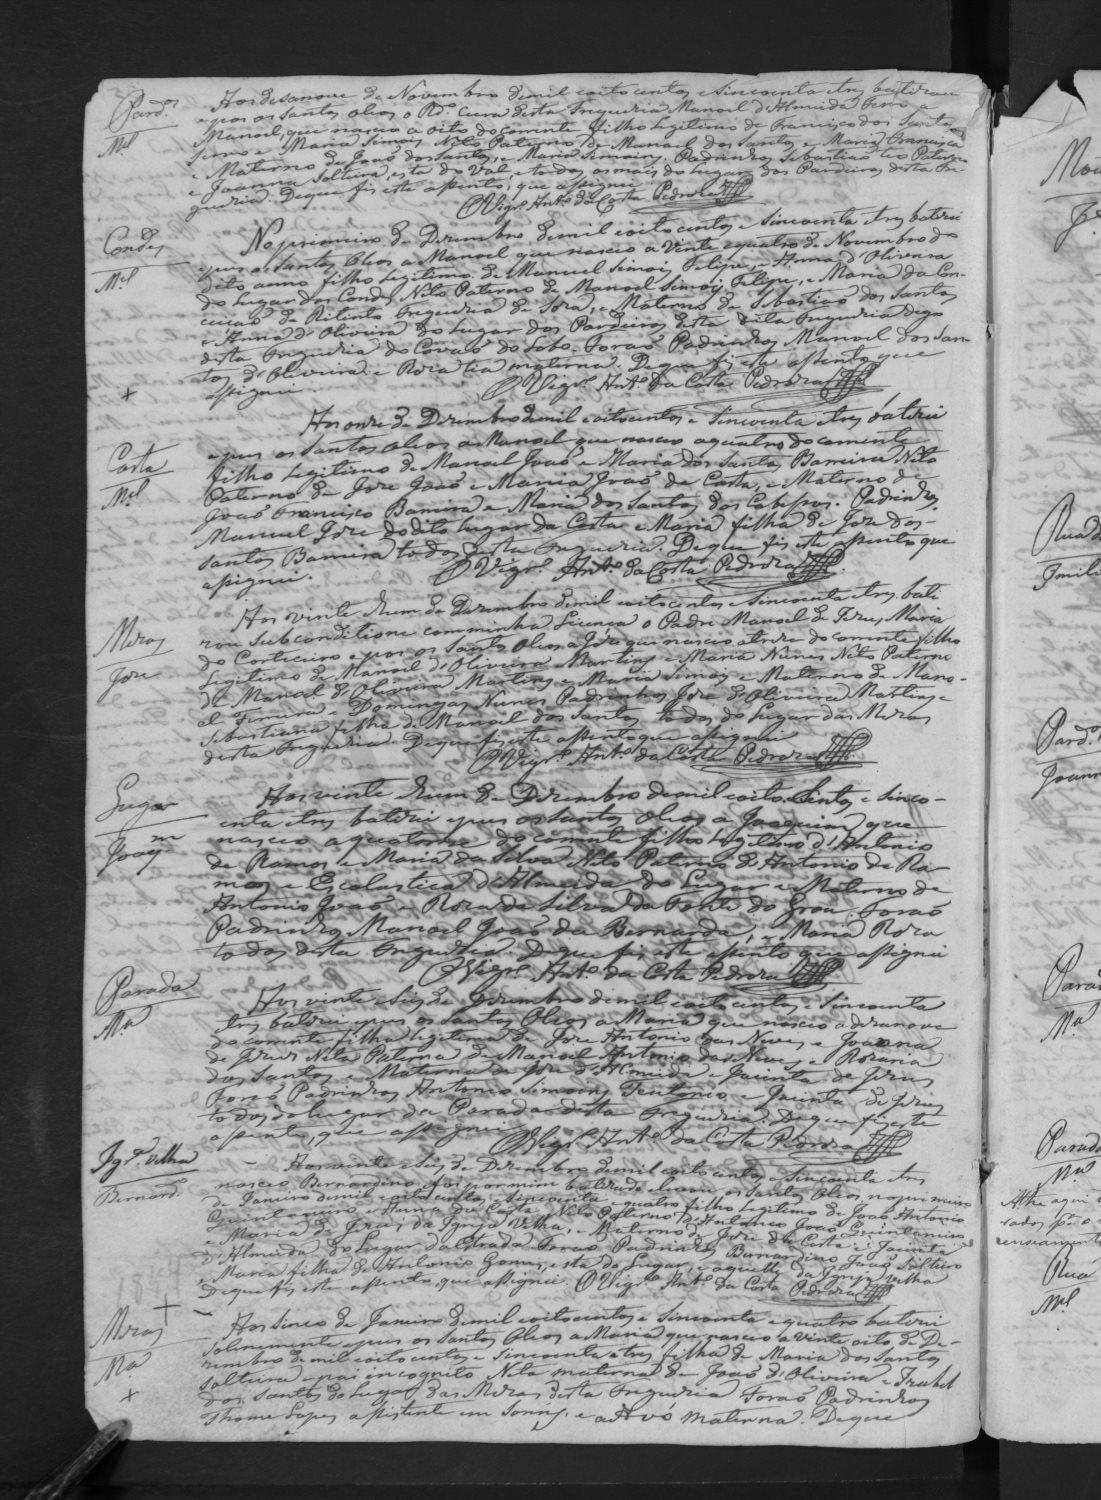 Pard.os
M.el
Aos desanove de Novembro de mil e oito centos e sincoenta e tres batizou
e pos os Santos Oleos o R.do Cura desta Freguezia Manoel d'Almeida Ferro a
Manoel, que nasceo a oito do corrente filho legitimo de Francisco dos Santos
e Maria Simois Neto Paterno de Manoel dos Santos e Maria Francisca
e Materno de João dos Santos, e Maria Simois. Padrinhos Sebastião tio Paterno
e Joanna Solteira, esta do Val, e todos os mais do Lugar dos Pardieiros desta Fre-
guezia. De que fis este assento, que assignei
O Vigr.o Ant.o da Costa Pedroza
Condes
M.el
No primeiro de Dezembro de mil e oito centos e sincoenta e tres batizei
e pus os Santos Oleos a Manoel que nasceo a vinte e quatro de Novembro do
dito anno filho legitimo de Manuel Simois Felipe, e Anna d'Oliveira
do Lugar dos Condes Neto Paterno de Manoel Simois Felipe, e Maria da Con-
ceicaõ de Freguezia de e Materno de Sebastiaõ dos Santos
e Anna d'Oliveira do Lugar dos Pardieiros desta dita Freguezia digo
desta Freguezia do Covaõ do Lobo. Foraõ Padrinhos Manoel dos San-
tos d'Oliveira e Roza tia materna. De que fis este assento que
assignei.
O Vigr.o Ant.o da Costa Pedroza
+
Costa
M.el
Aos onze de Dezembro de mil e oito centos e sincoenta e tres batizei
e pus os Santos Oleos a Manoel que nasceo a quatro do corrente
filho legitimo de Manoel João e Maria dos Santos Barreira Neto
Paterno de Joze João e Maria João da Costa, e Materno de
João Francisco Barreira e Maria dos Santos dos Cabessos. Padrinhos,
Manuel Joze do dito Lugar da Costa e Maria filha de Joze dos-
Santos Barreira todos desta Freguezia. De que fis este assento que
assignei.
O Vigr.o Ant.o da Costa Pedroza
Mezas
Joze
Aos vinte e hum de Dezembro de mil e oito centos e sincoenta e tres bati
zou subconditione com minha licenca o Padre Manoel de Jezus Maria
do Corticeiro e pos os Santos Oleos a Joze que nasceo a treze do corrente filho
legitimo de Manoel d'Oliveira Martins e Maria Nunes Neto Paterno
de Manoel de Oliveira Martins e Maria Simois e Materno de Mano-
el e Domingas Nunes Padrinhos Joze de Oliveira Martins e
Sebastiana filha de Manoel dos Santos todos do Lugar das Mezas
desta Freguezia. De que fis este assento que assignei
O Vigr.o Ant.o da Costa Pedroza
Lugar
Joaq.m
Aos vinte e hum de Dezembro de mil e oito centos e sinco-
enta e tres batizei e pus os Santos Oleos a Joaquim que
nasceo a quatorze do corrente filho legitimo d'Antonio
de Ramos e Maria da Silva Neto Paterno de Antonio de Ra-
mos e Escolastica d'Almeida do Lugar e Materno de
Antonio João e Roza da Silva da Fonte do Grou. Foraõ
Padrinhos Manoel João da Bernarda, e Maria Roza
todos desta Freguezia. De que fis este assento que assignei
O Vigr.o Ant.o da Costa Pedroza
Parada
M.a
Aos vinte e seis de Dezembro de mil e oito centos e sincoenta e
tres batizei e pus os Santos Oleos a Maria que nasceo a dezanove
do corrente filha legitima de Joze Antonio das Neves e Joanna
de Jezus Neta Paterna de Manoel Antonio das Neves, e Rozaria
dos Santos e Materna de Joze d'Almeida e Jacinta de Jezus
Foraõ Padrinhos Antonio Simois Teutonio e Jacinta de Jezus
todos do lugar da Parada desta Freguezia. De que fis este
assento, que assignei
O Vigr.o Ant.o da Costa Pedroza
Igr.a Velha
Bernard.o
Aos vinte e seis de Dezembro de mil e oito centos e sincoenta e tres
nasceo Bernardino e foi por mim batizado e levou os Santos Oleos no primeiro
de Janeiro de mil e oito centos e sincoenta e quatro filho legitimo de João Antonio
e Anna da Costa Neto Paterno d'Antonio João
e Maria de Jezus da Igreja Velha, e Materno de Joze da Costa e Jacinta
d'Almeida do Lugar da Estrada. Foraõ Padrinhos Bernardino João Solteiro
e Maria filha de Antonio Gomes, esta do Lugar, e aquelle da Igreja Velha
De que fis este assento, que assignei. O Vigr.o Ant.o da Costa Pedroza
+
Mezas
M.a
+
Aos sinco de Janeiro de mil e oito centos e sincoenta e quatro batizei
solenemente e pus os Santos Oleos a Maria que nasceo a vinte oito de De-
zembro de mil e oito centos e sincoenta e tres filha de Maria dos Santos
solteira e pai incognito Neta maternal de João d'Oliveira e Izabel
dos Santos do Lugar das Mezas desta Freguezia Foraõ Padrinhos
Thome Lopes assistente em e a Avó materna. De que
Rua d
Pard.o
Joann
Parad
M.a
Parada
M.el
Athe aqui
Rua
M.el